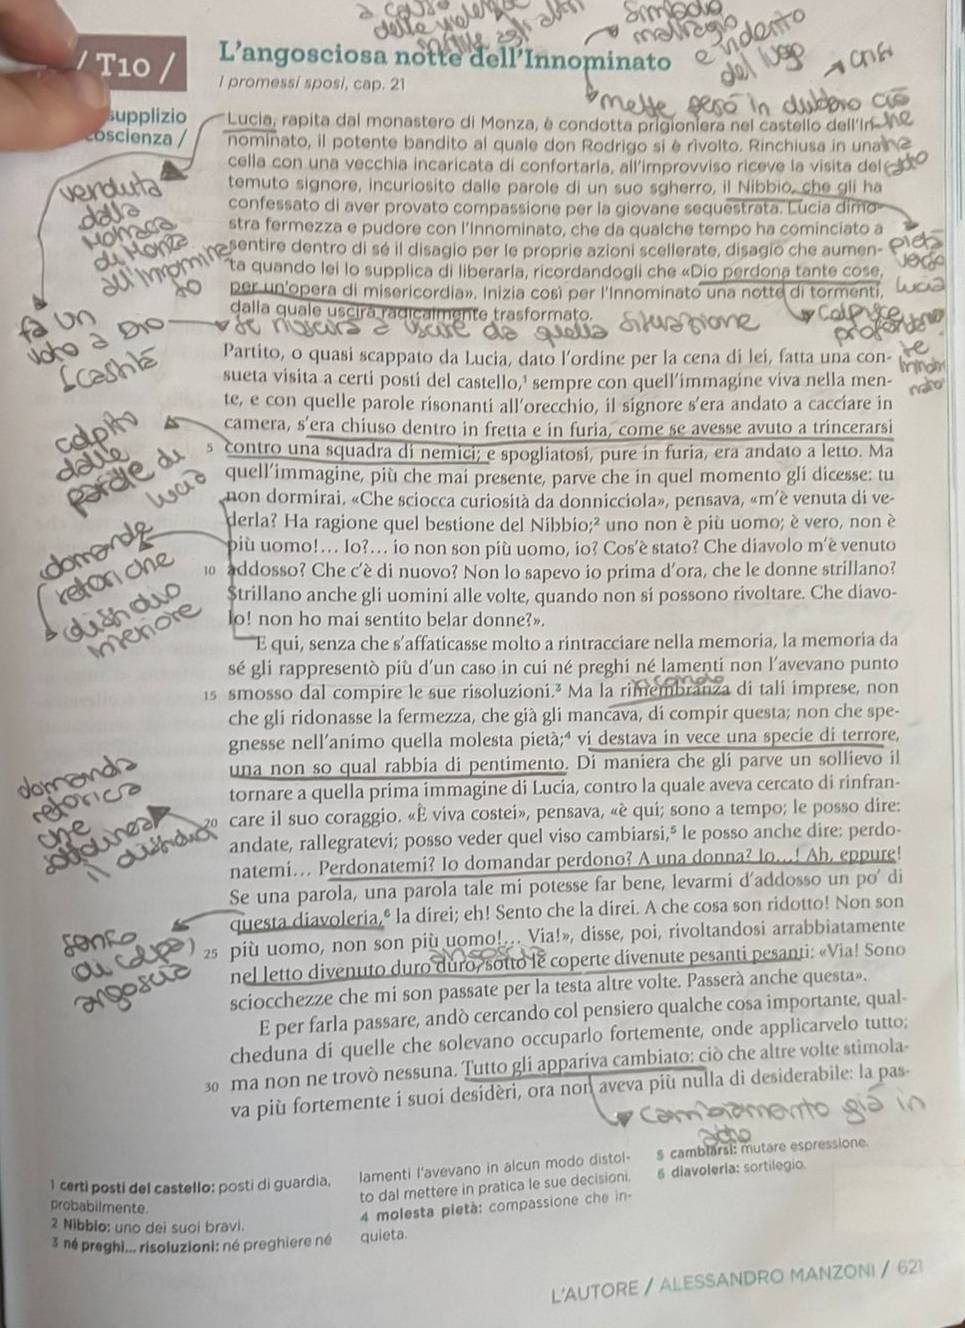 a causa
delle violenze
simbolo
malvagio
evidente
del luogo
/ T10 /
L'angosciosa notte dell'Innominato
I promessi sposi, cap. 21
mette però in dubbio ciò
che
supplizio
coscienza /
Lucia, rapita dal monastero di Monza, è condotta prigioniera nel castello dell'In-
nominato, il potente bandito al quale don Rodrigo si è rivolto. Rinchiusa in una
cella con una vecchia incaricata di confortarla, all'improvviso riceve la visita del
temuto signore, incuriosito dalle parole di un suo sgherro, il Nibbio, che gli ha
confessato di aver provato compassione per la giovane sequestrata. Lucia dimo-
stra fermezza e pudore con l'Innominato, che da qualche tempo ha cominciato a
sentire dentro di sé il disagio per le proprie azioni scellerate, disagio che aumen-
ta quando lei lo supplica di liberarla, ricordandogli che «Dio perdona tante cose,
per un'opera di misericordia». Inizia così per l'Innominato una notte di tormenti,
dalla quale uscirà radicalmente trasformato.
venduta
dalla
Monaca
di Monza
all'Innomina
to
pietà
verso
Lucia
fa un
voto a Dio
castità
se riuscirà a uscire da quella situazione
colpisce
profondamen
te
Innomi
nato
Partito, o quasi scappato da Lucia, dato l'ordine per la cena di lei, fatta una con-
sueta visita a certi posti del castello,¹ sempre con quell'immagine viva nella men-
te, e con quelle parole risonanti all'orecchio, il signore s'era andato a cacciare in
camera, s'era chiuso dentro in fretta e in furia, come se avesse avuto a trincerarsi
5 contro una squadra di nemici; e spogliatosi, pure in furia, era andato a letto. Ma
quell'immagine, più che mai presente, parve che in quel momento gli dicesse: tu
non dormirai. «Che sciocca curiosità da donnicciola», pensava, «m'è venuta di ve-
derla? Ha ragione quel bestione del Nibbio;² uno non è più uomo; è vero, non è
più uomo!... Io?... io non son più uomo, io? Cos'è stato? Che diavolo m'è venuto
10 addosso? Che c'è di nuovo? Non lo sapevo io prima d'ora, che le donne strillano?
Strillano anche gli uomini alle volte, quando non si possono rivoltare. Che diavo-
lo! non ho mai sentito belar donne?».
colpito
dalle
parole di
Lucia
domande
retoriche
dissidio
interiore
E qui, senza che s'affaticasse molto a rintracciare nella memoria, la memoria da
sé gli rappresentò più d'un caso in cui né preghi né lamenti non l'avevano punto
15 smosso dal compire le sue risoluzioni.³ Ma la rimembranza di tali imprese, non
che gli ridonasse la fermezza, che già gli mancava, di compir questa; non che spe-
gnesse nell'animo quella molesta pietà;⁴ vi destava in vece una specie di terrore,
una non so qual rabbia di pentimento. Di maniera che gli parve un sollievo il
tornare a quella prima immagine di Lucia, contro la quale aveva cercato di rinfran-
20 care il suo coraggio. «È viva costei», pensava, «è qui; sono a tempo; le posso dire:
andate, rallegratevi; posso veder quel viso cambiarsi,⁵ le posso anche dire: perdo-
natemi... Perdonatemi? Io domandar perdono? A una donna? Io...! Ah, eppure!
Se una parola, una parola tale mi potesse far bene, levarmi d'addosso un po' di
questa diavoleria,⁶ la direi; eh! Sento che la direi. A che cosa son ridotto! Non son
25 più uomo, non son più uomo!... Via!», disse, poi, rivoltandosi arrabbiatamente
nel letto divenuto duro duro, sotto le coperte divenute pesanti pesanti: «Via! Sono
sciocchezze che mi son passate per la testa altre volte. Passerà anche questa».
domanda
retorica
che
sottolinea
il dissidio
senso
di colpa
angoscia
E per farla passare, andò cercando col pensiero qualche cosa importante, qual-
cheduna di quelle che solevano occuparlo fortemente, onde applicarvelo tutto;
30 ma non ne trovò nessuna. Tutto gli appariva cambiato: ciò che altre volte stimola-
va più fortemente i suoi desidèri, ora non aveva più nulla di desiderabile: la pas-
cambiamento già in
atto
1 certi posti del castello: posti di guardia,
probabilmente.
2 Nibbio: uno dei suoi bravi.
3 né preghi... risoluzioni: né preghiere né
lamenti l'avevano in alcun modo distol-
to dal mettere in pratica le sue decisioni.
4 molesta pietà: compassione che in-
quieta.
5 cambiarsi: mutare espressione.
6 diavoleria: sortilegio.
L'AUTORE / ALESSANDRO MANZONI / 621